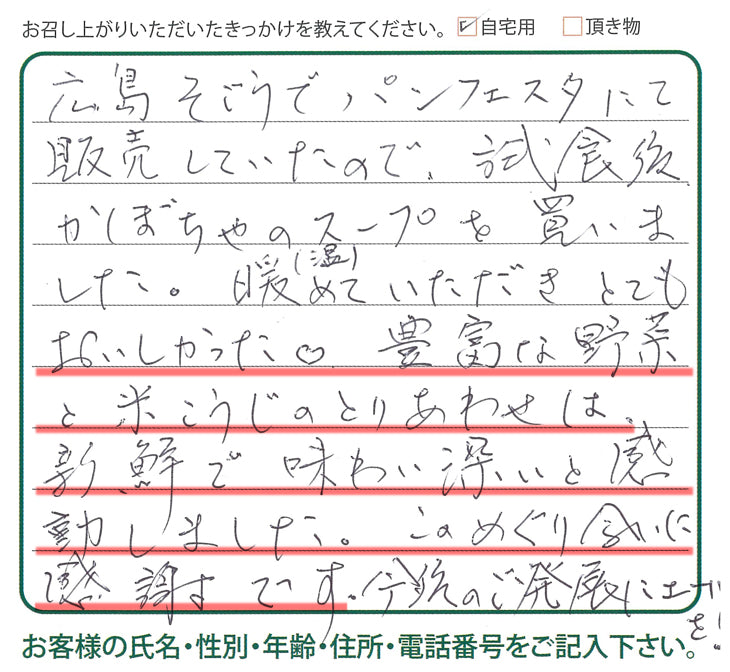 お召し上がりいただいたきっかけを教えてください。 自宅用 頂き物
広島そごうでパンフェスタにて
販売していたので、試食後
かぼちゃのスープを買いま
(温)
した。暖めていただきとても
おいしかった♡ 豊富な野菜
と米こうじのとりあわせは、
新鮮で味わい深いと感
動しました。このめぐり会いに
感謝です。今後のご発展にエール
を!
お客様の氏名・性別・年齢・住所・電話番号をご記入下さい。